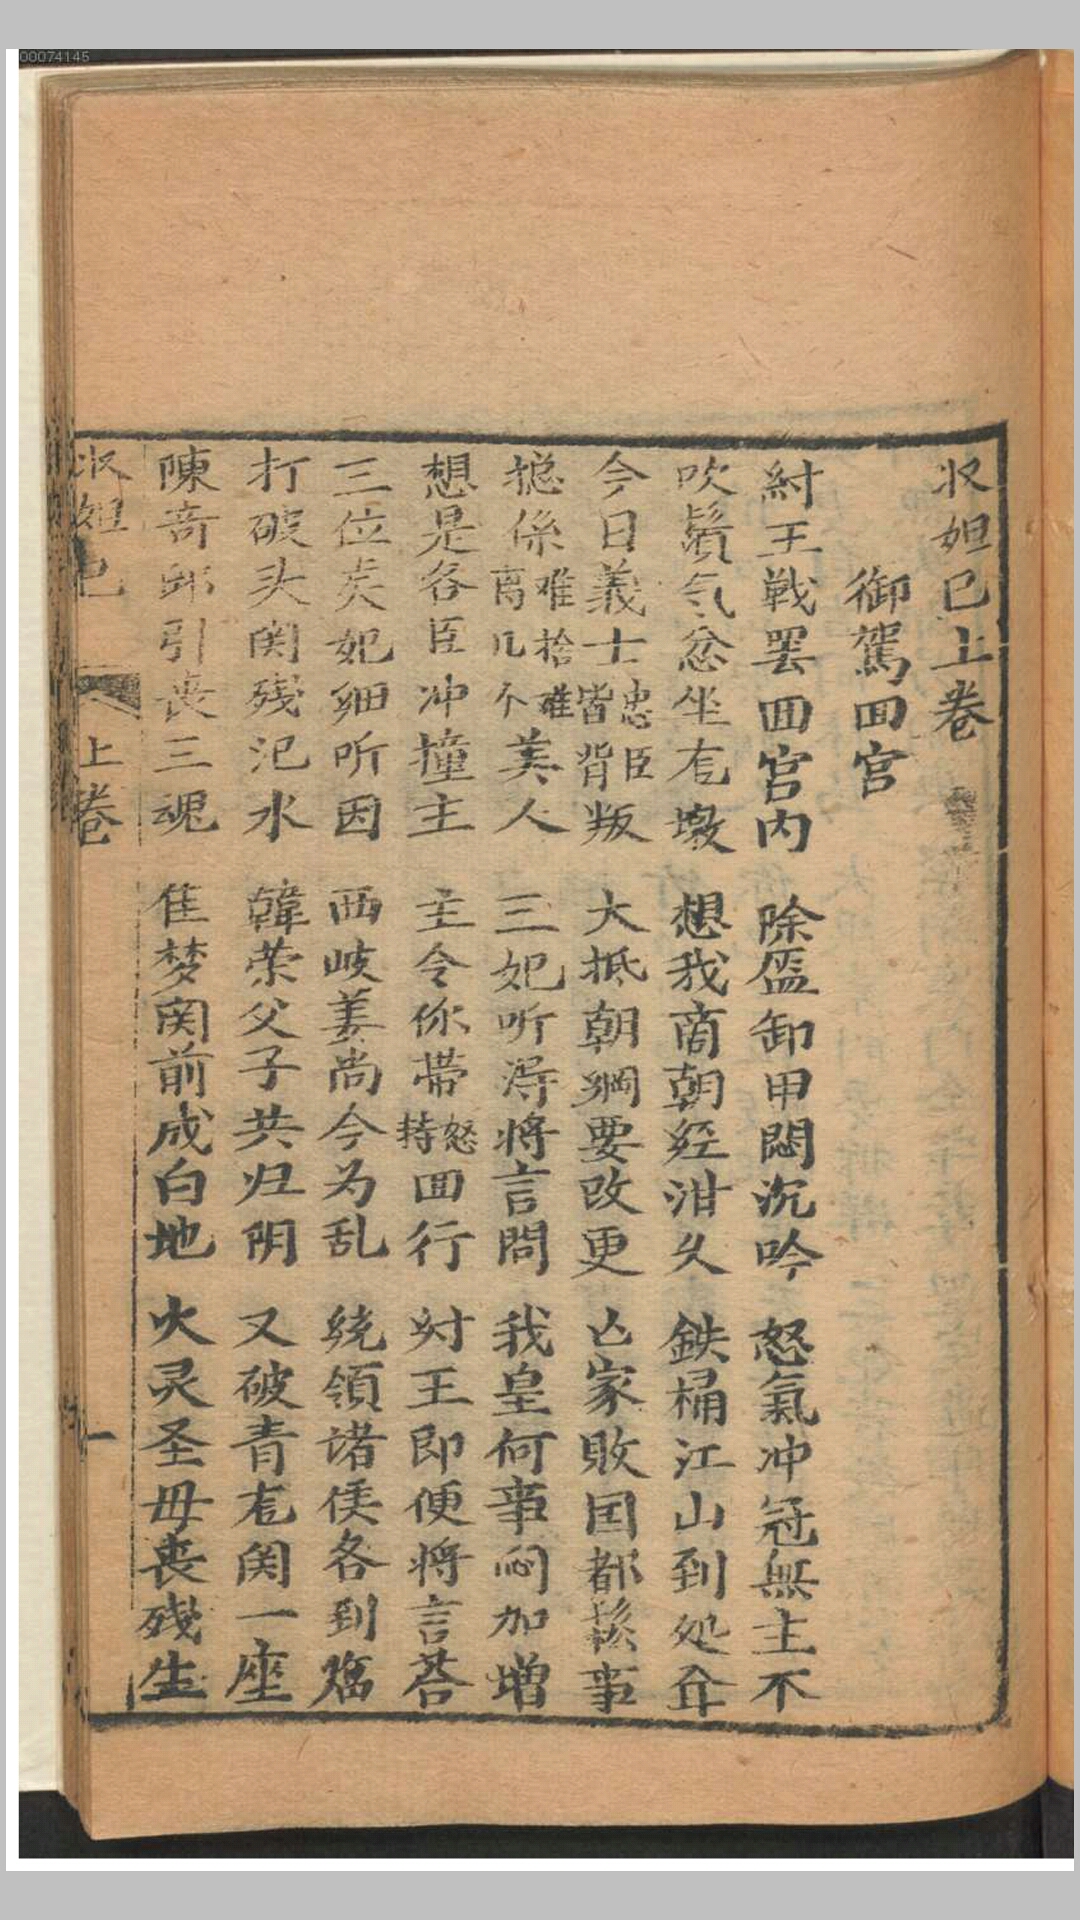 00074145
收妲已上卷
御駕囬宫
紂王戦罢囬宫内 除盔卸甲悶沉吟 怒氣冲冠無主不
吹鬚气忿坐尨墩 想我商朝经泔久 鉄桶江山到处耸
今日義士忠臣皆背叛 大抵朝綱要改更 亡家敗囯都鬆事
搃係难捨难离几不美人 三妃听淂将言問 我皇何事闷加增
想是各臣冲撞主 主令你帶怒持囬行 紂王即便将言荅
三位矣妃细听因 西岐姜尚今为乱 统領诸侯各到臨
打破头関殘汜水 韓荣父子共归阴 又破青尨関一座
陳奇郑引丧三魂 隹梦関前成白地 火灵圣母丧殘生
收妲已 上卷 一